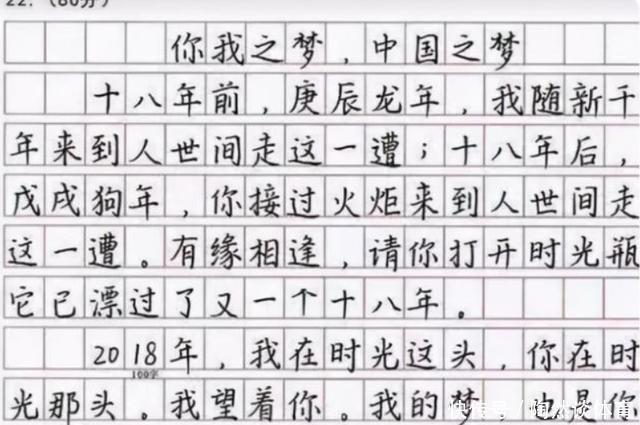 22.（60分）
你我之梦，中国之梦
十八年前，庚辰龙年，我随新千
年来到人世间走这一遭；十八年后，
戊戌狗年，你接过火炬来到人世间走
这一遭。有缘相逢，请你打开时光瓶
它已漂过了又一个十八年。
2018年，我在时光这头，你在时
100字
光那头。我望着你。我的梦，也是你
快传号/